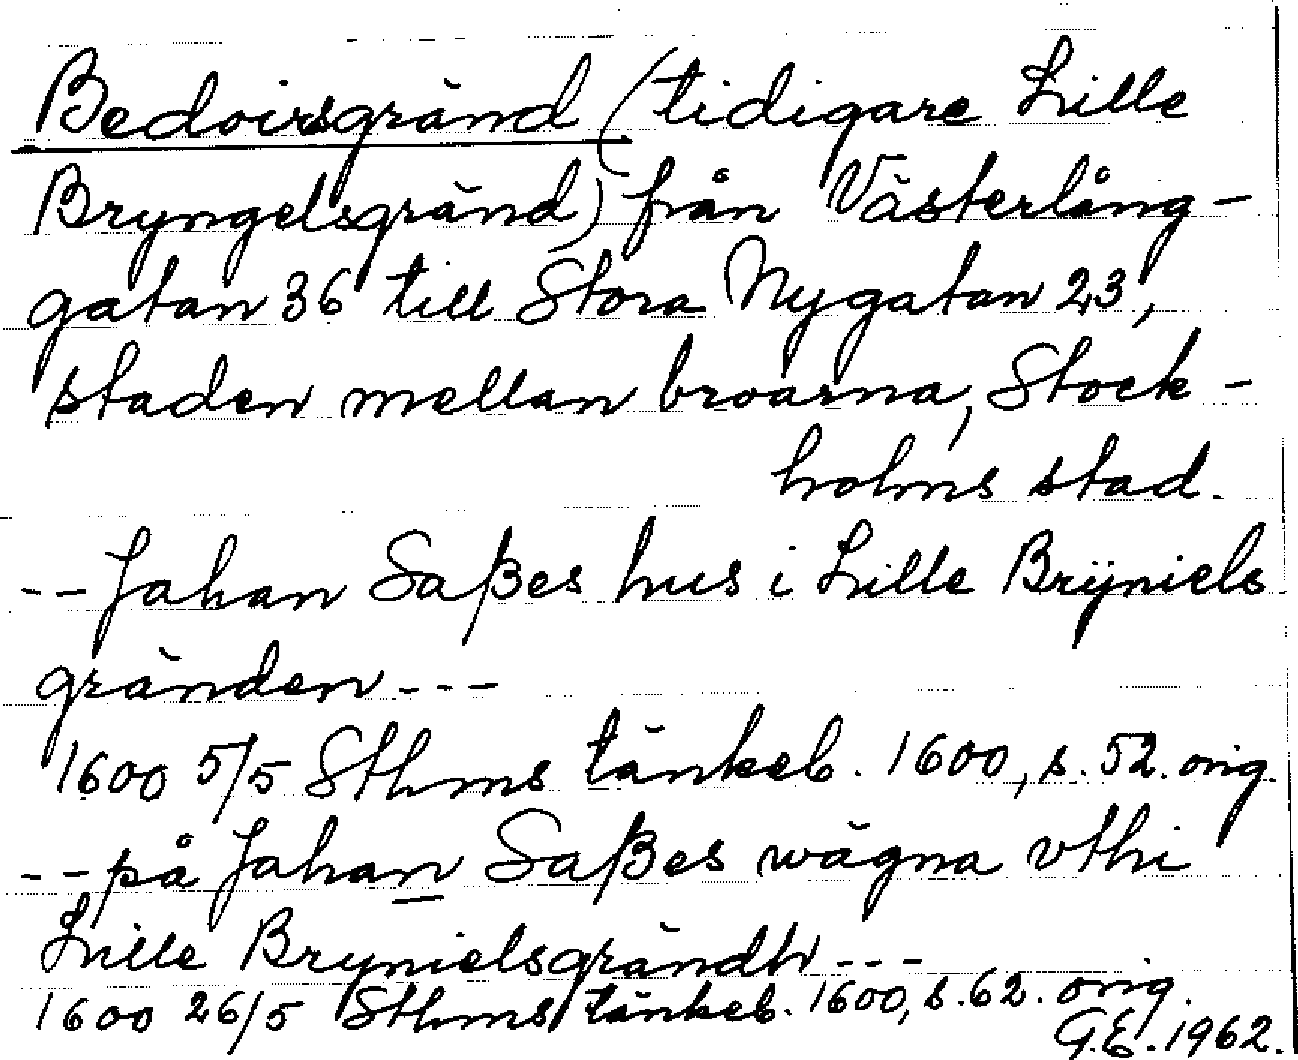 Bedoirsgränd (tidigare Lille
Bryngelsgränd) från Västerlång-
gatan 36 till Stora Nygatan 23,
staden mellan broarna, Stock-
holms stad.
-- Jahan Saßes hus i Lille Brÿniels
gränden ---
1600 5/5 Sthms tänkeb. 1600, s. 52. orig.
-- på Jahan Saßes wägna vthi
Lille Brynielsgrändh ---
1600 26/5 Sthms tänkeb. 1600, s. 62. orig.
G.E. 1962.